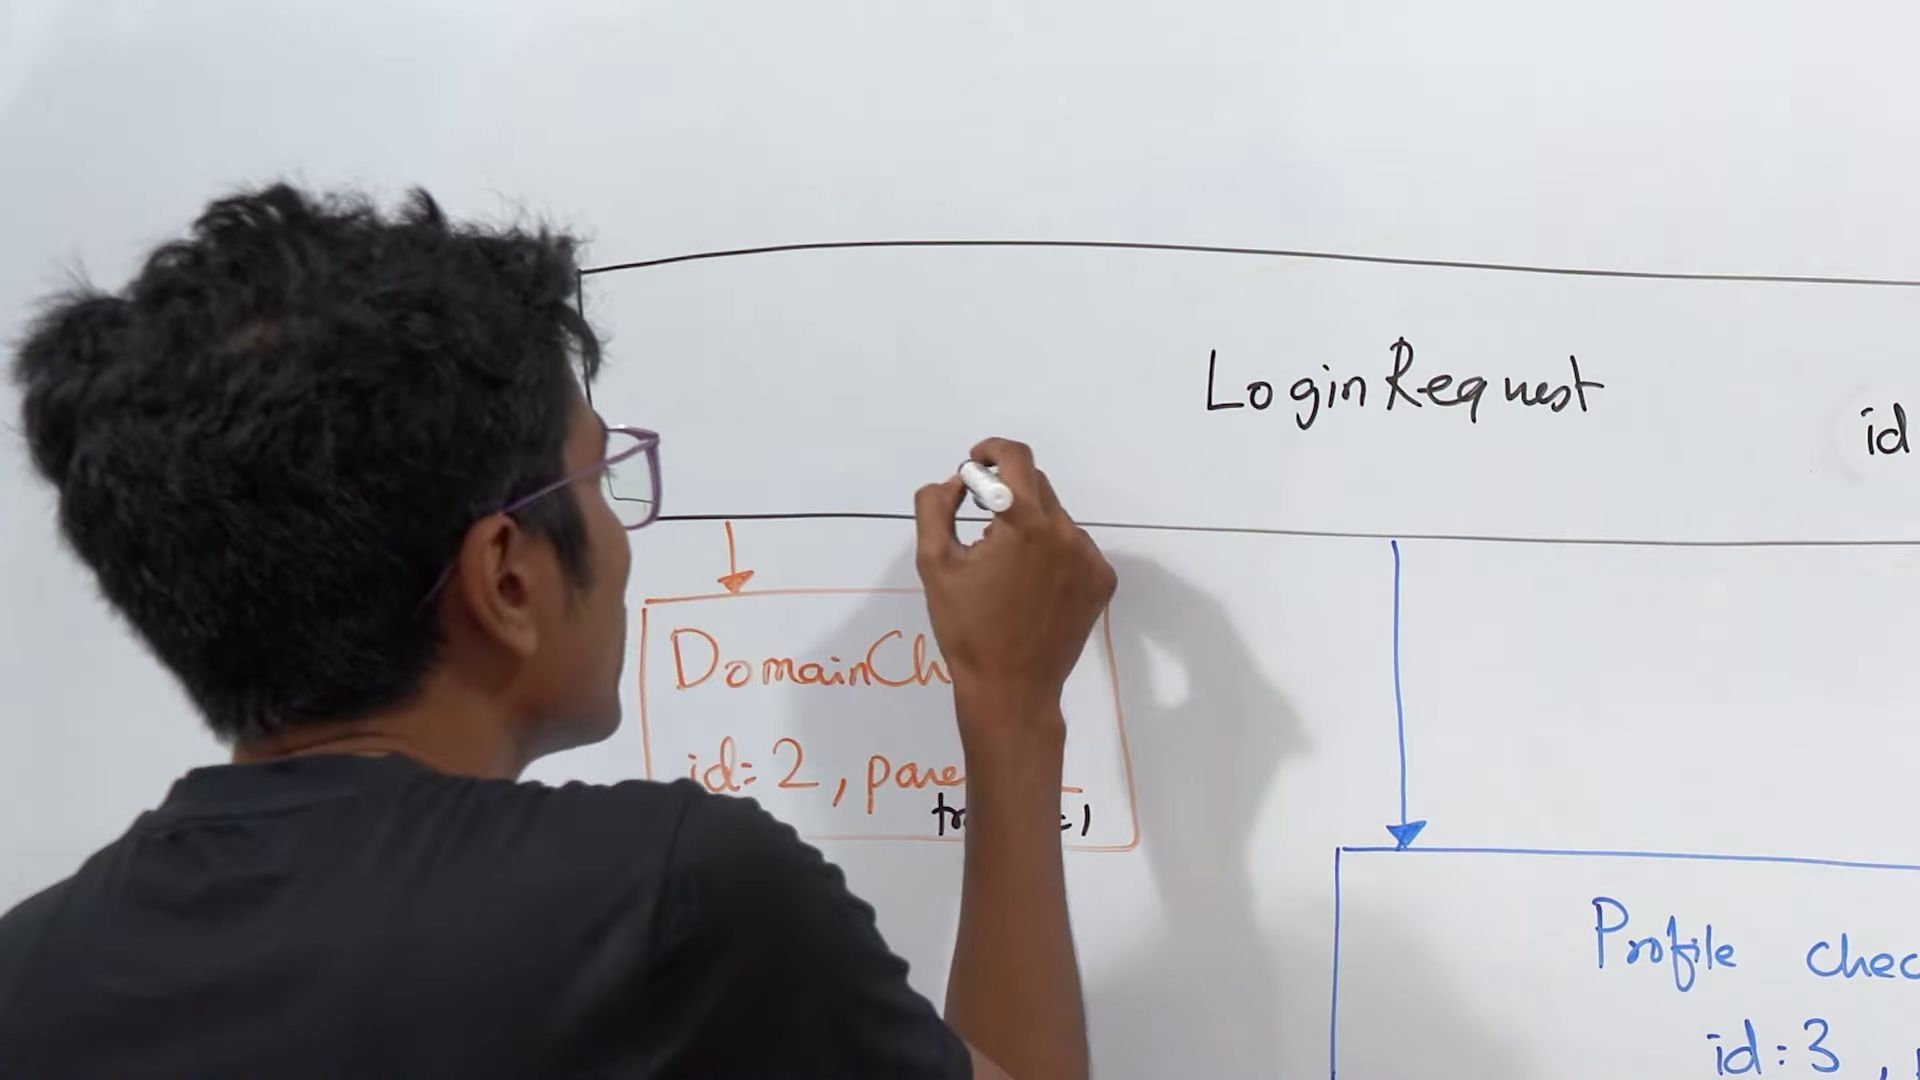 LoginRequest
id
DomainCh
id=2, pare
=1
Profile chec
id:3,